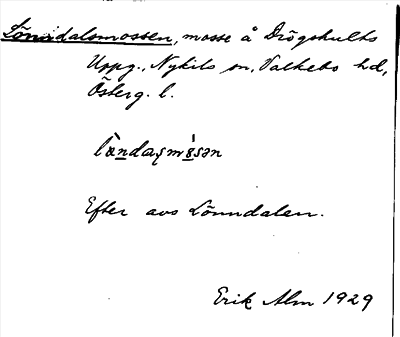 Lönndalsmossen, mosse å Drögshults
Uppg., Nykils sn, Valkebo hd,
Österg. l.
Efter avs Lönndalen.
Erik Alm 1929